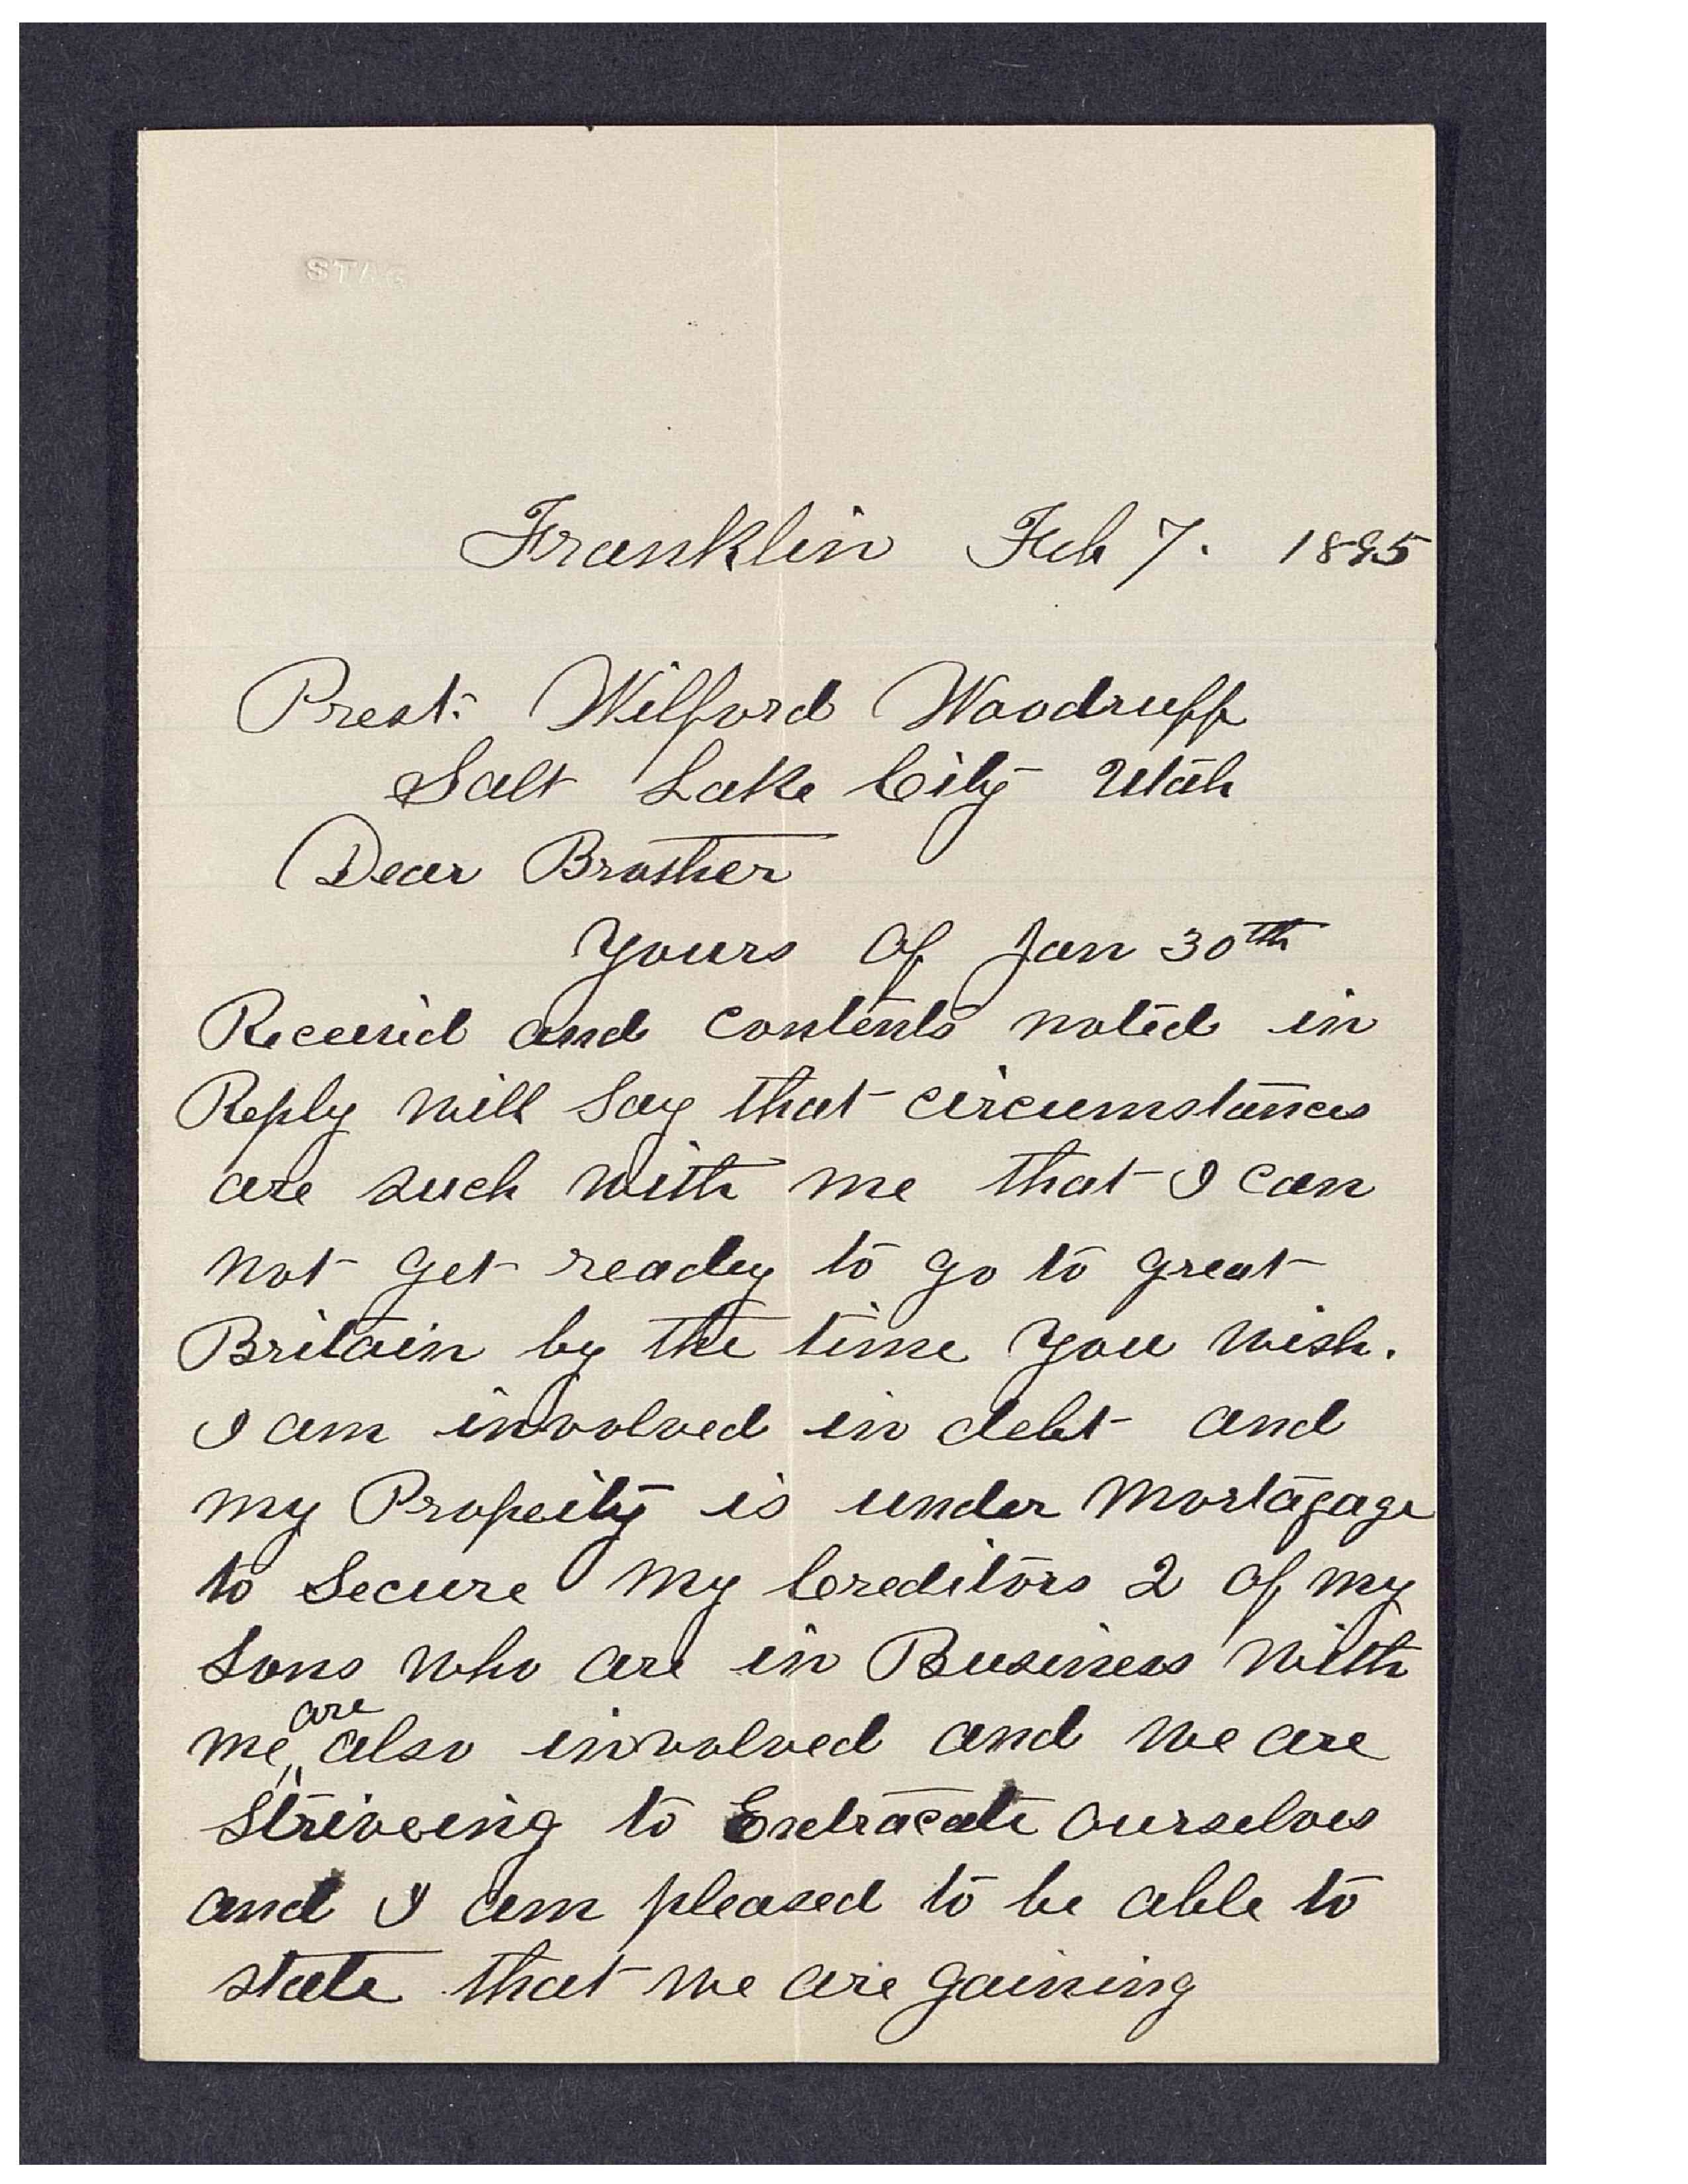 STAG
Franklin Feb 7. 1895
Prest. Wilford Woodruff
Salt Lake City Utah
Dear Brother
Yours of Jan 30th
Receivid and contents noted in
Reply will say that circumstances
are such with me that I can
not get ready to go to great
Britain by the time you wish.
I am involved in debt and
my Property is under mortagage
to Secure my Creditors 2 of my
Sons who are in Business with
are
me also involved and we are
Striveing to Extracate ourselves
and I am pleased to be able to
state that we are gaining